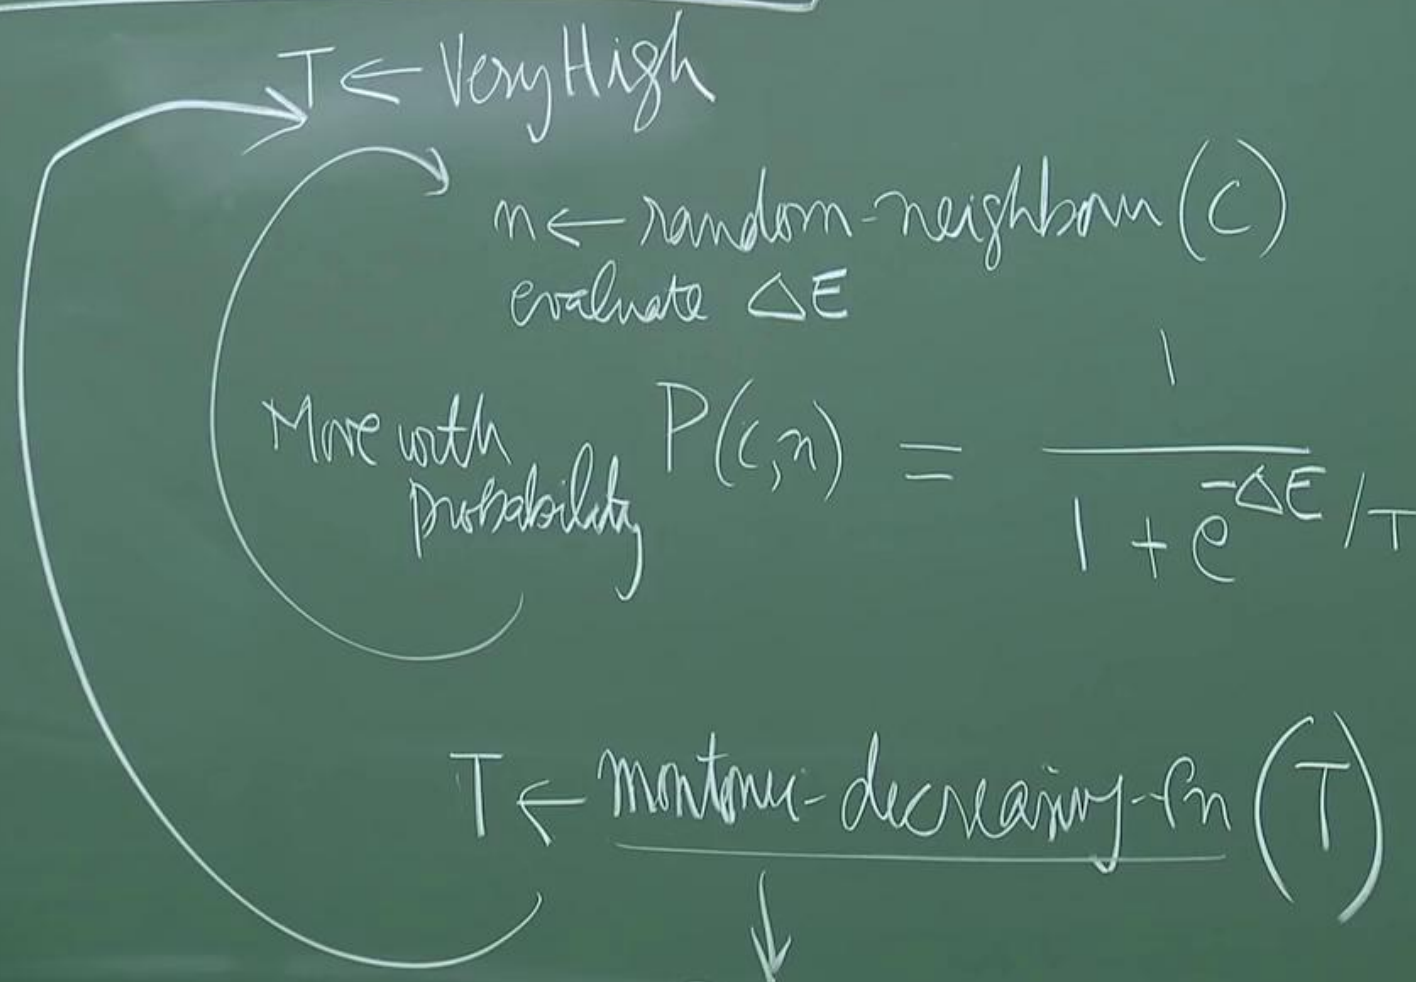 T ← Very High
n ← random-neighbour (C)
evaluate ΔE
Move with probability P(c,n) = 1 / (1 + e^(-ΔE/T))
T ← montonic-decreasing-fn (T)